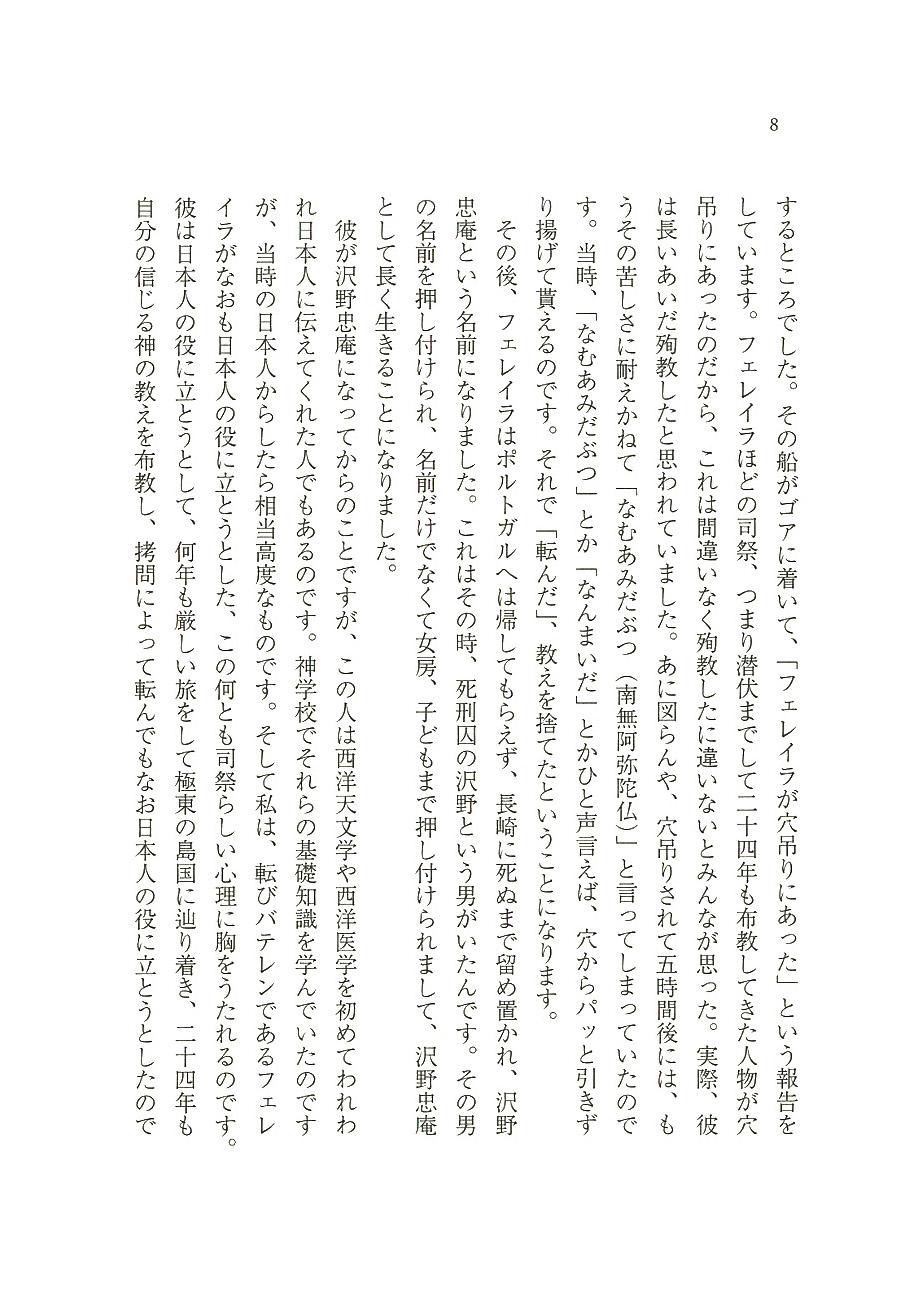 8
するところでした。その船がゴアに着いて、「フェレイラが穴吊りにあった」という報告を
しています。フェレイラほどの司祭、つまり潜伏までして二十四年も布教してきた人物が穴
吊りにあったのだから、これは間違いなく殉教したに違いないとみんなが思った。実際、彼
は長いあいだ殉教したと思われていました。あに図らんや、穴吊りされて五時間後には、も
うその苦しさに耐えかねて「なむあみだぶつ（南無阿弥陀仏）」と言ってしまっていたので
す。当時、「なむあみだぶつ」とか「なんまいだ」とかひと声言えば、穴からパッと引きず
り揚げて貰えるのです。それで「転んだ」、教えを捨てたということになります。
その後、フェレイラはポルトガルへは帰してもらえず、長崎に死ぬまで留め置かれ、沢野
忠庵という名前になりました。これはその時、死刑囚の沢野という男がいたんです。その男
の名前を押し付けられ、名前だけでなくて女房、子どもまで押し付けられまして、沢野忠庵
として長く生きることになりました。
彼が沢野忠庵になってからのことですが、この人は西洋天文学や西洋医学を初めてわれわ
れ日本人に伝えてくれた人でもあるのです。神学校でそれらの基礎知識を学んでいたのです
が、当時の日本人からしたら相当高度なものです。そして私は、転びバテレンであるフェレ
イラがなおも日本人の役に立とうとした、この何とも司祭らしい心理に胸をうたれるのです。
彼は日本人の役に立とうとして、何年も厳しい旅をして極東の島国に辿り着き、二十四年も
自分の信じる神の教えを布教し、拷問によって転んでもなお日本人の役に立とうとしたので